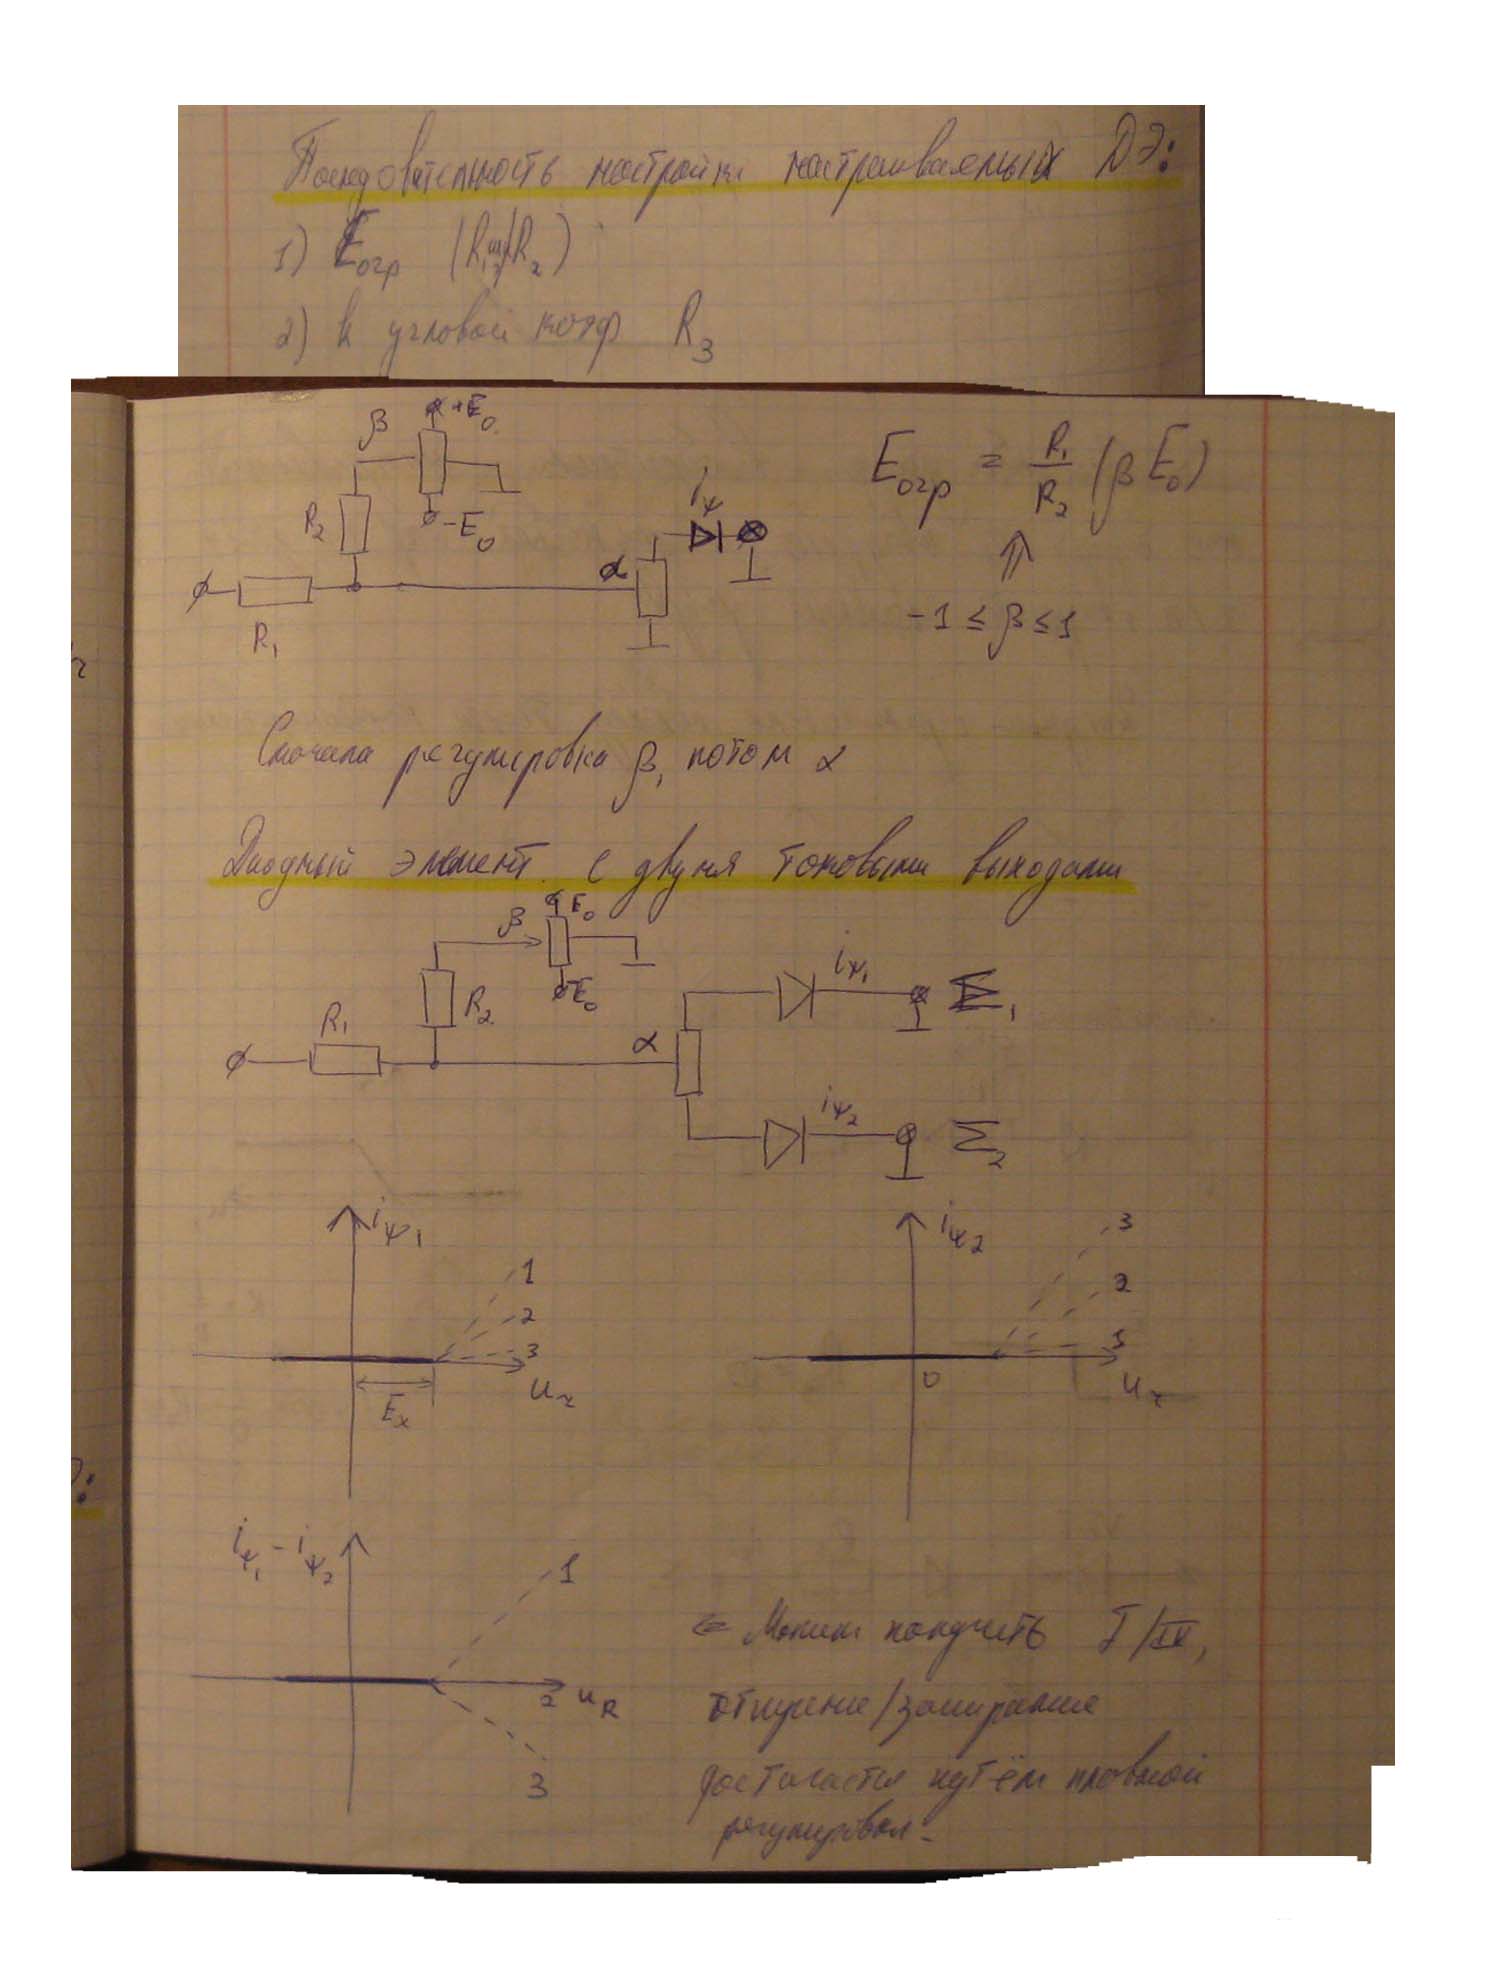 Последовательность настройки настраиваемых ДЭ:
1) Eогр (R₁ или R₂)
2) k угловой коэф R₃
β +E₀
R₂ -E₀
iψ
α
R₁
Eогр = R₁/R₂ (βE₀)
⇑
-1 ≤ β ≤ 1
Сначала регулировка β, потом α
Диодный элемент с двумя токовыми выходами
β E₀
R₂ -E₀
R₁
α
iψ₁ Σ₁
iψ₂ Σ₂
iψ₁
1
2
3
Eₓ
uₓ
iψ₂
3
2
1
0
uₓ
iψ₁ - iψ₂
1
2 uR
3
⇐ Можем получить I/IV,
отпирание/запирание
достигается путём плавной
регулировки